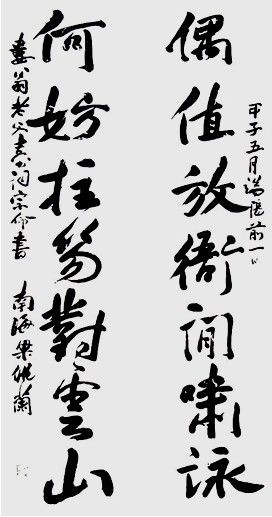 甲子五月端陽前一日
偶值放衙閒嘯詠
何妨拄笏對雲山
翁老父詞宗命書 南海梁佩蘭